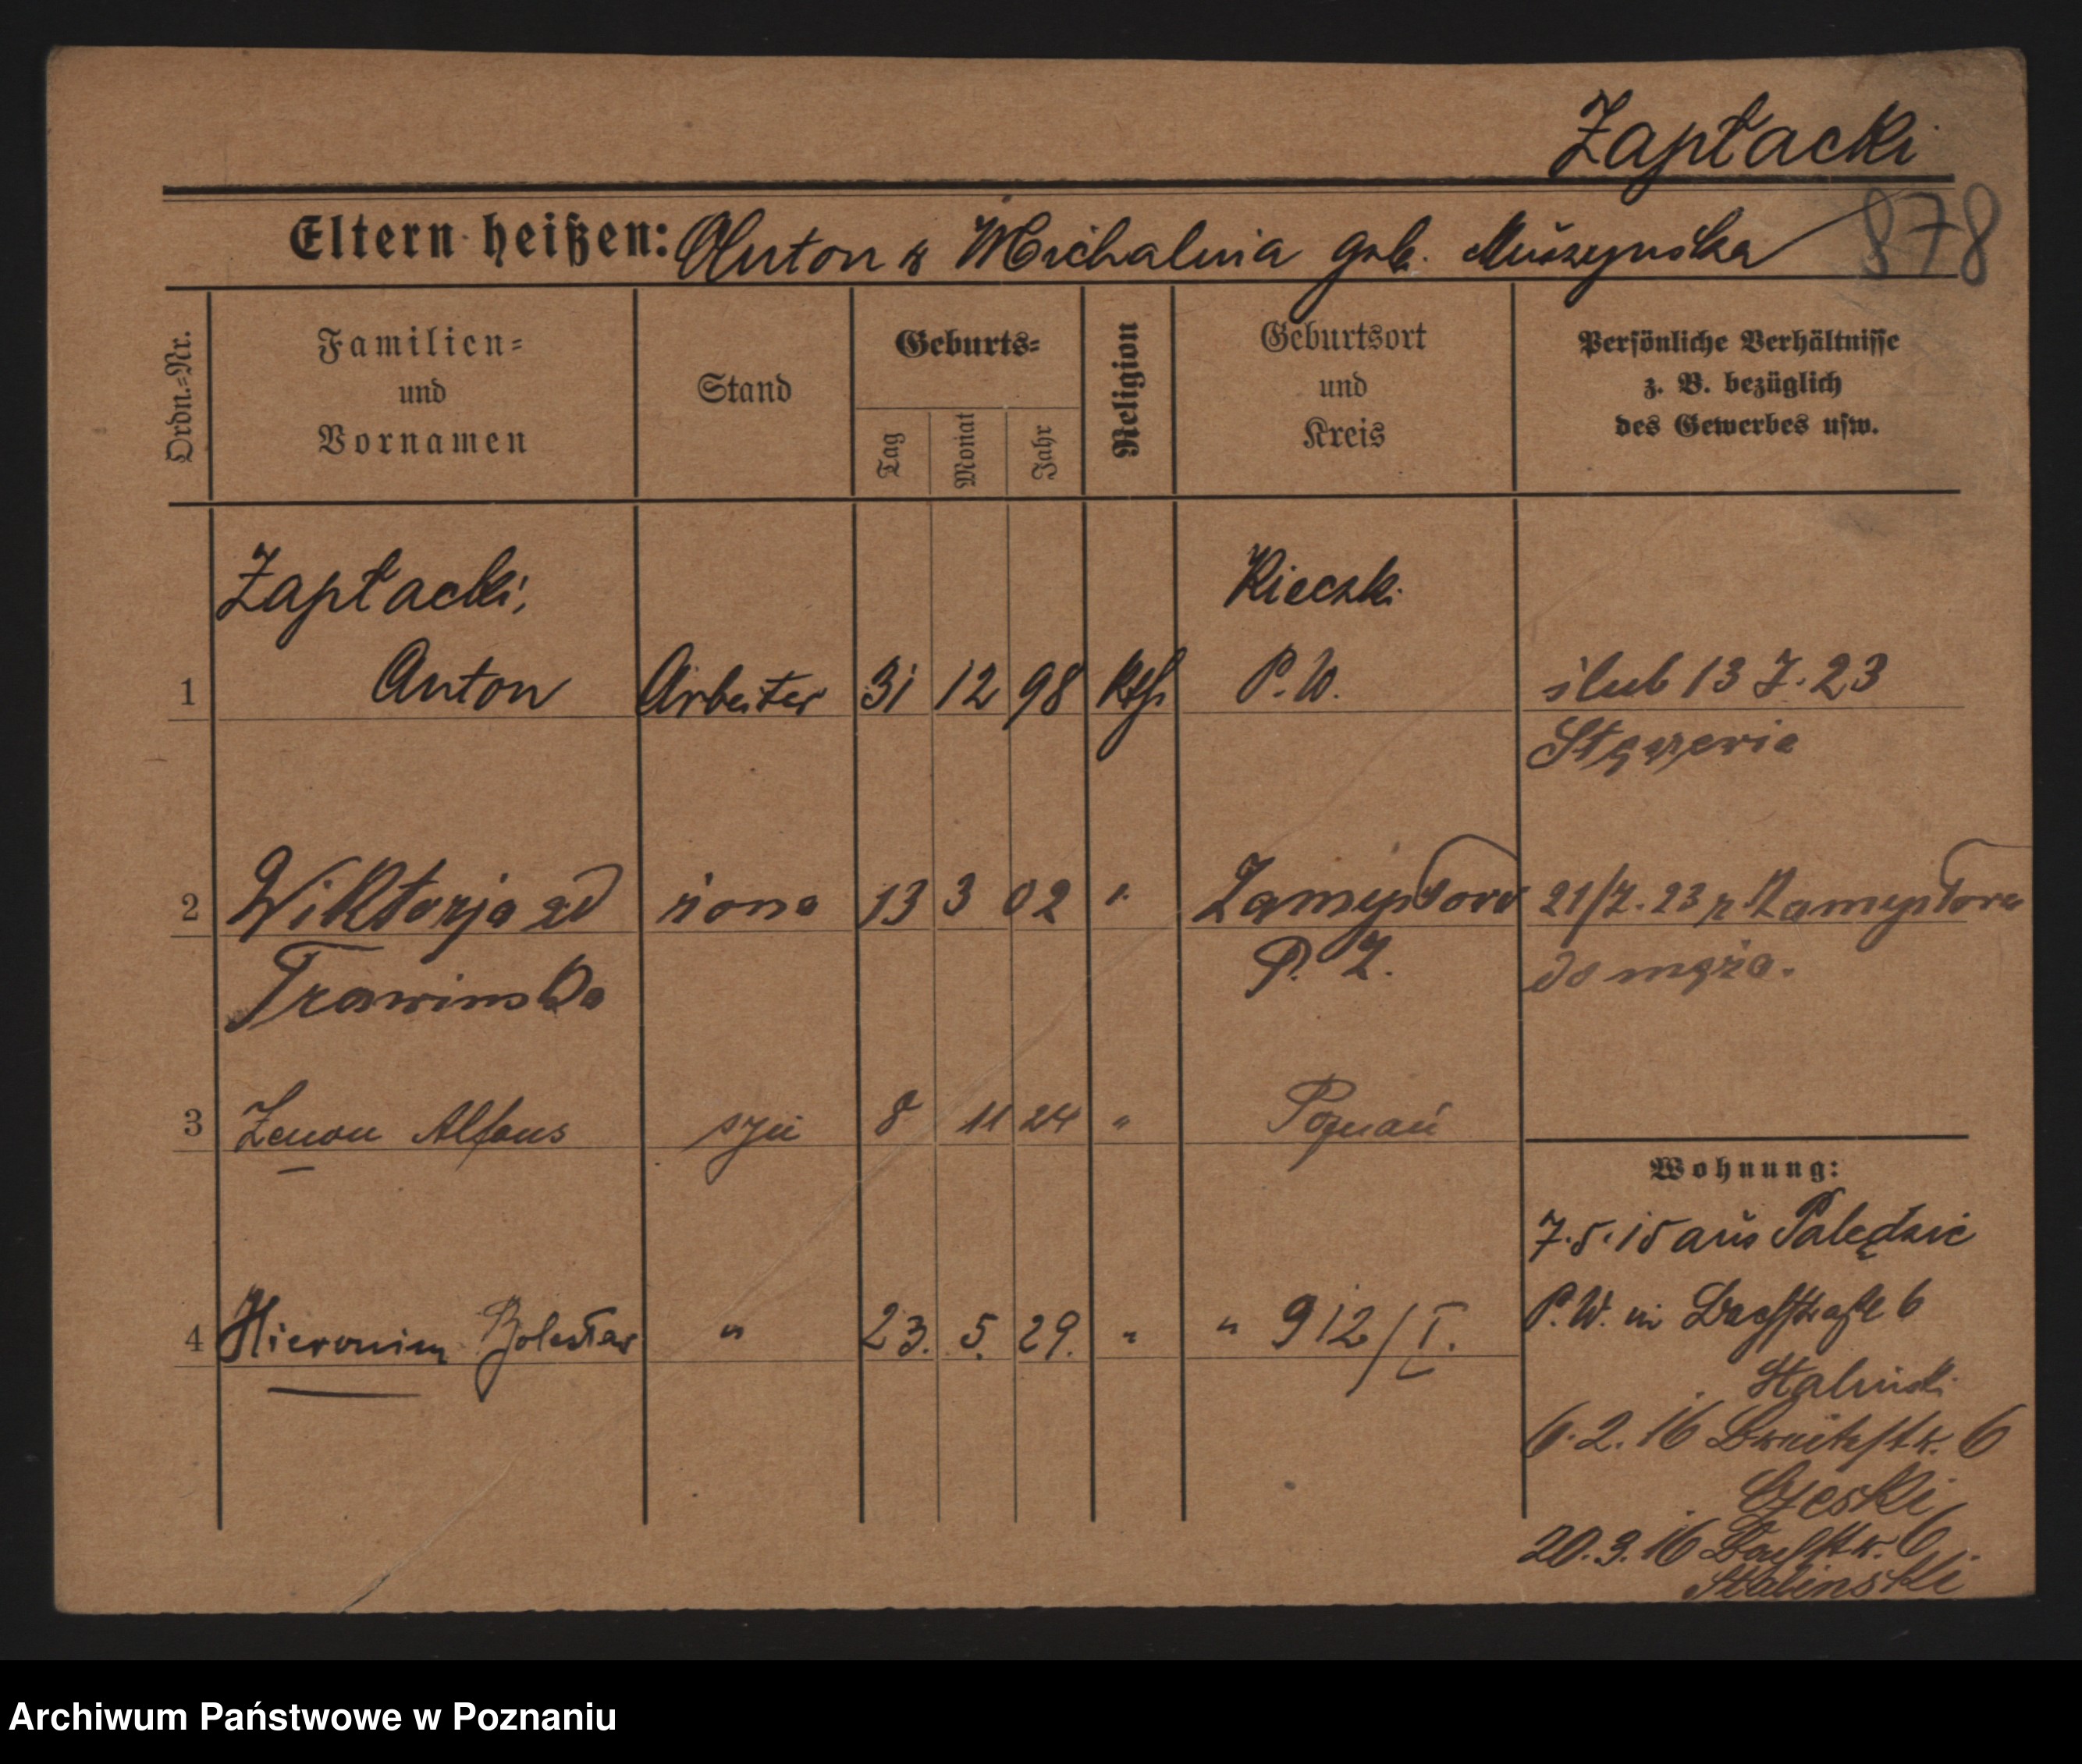 Zapłacki
878
Eltern heißen: Anton & Michalina geb. Muszynska
Ordn.=Nr.
Familien=
und
Vornamen
Stand
Geburts=
Tag
Monat
Jahr
Religion
Geburtsort
und
Kreis
Persönliche Verhältnisse
z. B. bezüglich
des Gewerbes usw.
Zapłacki, Kieczki
1 Anton Arbeiter 31 12 98 kth P. W. ślub 13 7. 23
2 Wiktorja zd żona 13 3 02 " Zamysłowo 21/7. 23 z Zamysłowa
Trawinska P. Z. do męża.
3 Zenon Alfons syn 8 11 24 " Poznań
4 Hieronim Bolesław " 23. 5. 29. " " 912/I.
Wohnung:
7.5.15 aus Palędzie
P. W. in Bachstraße 6
Stalinski
6.2.16 6
Czeski
20.3.16 Bachstr. 6
Stalinski
Archiwum Państwowe w Poznaniu